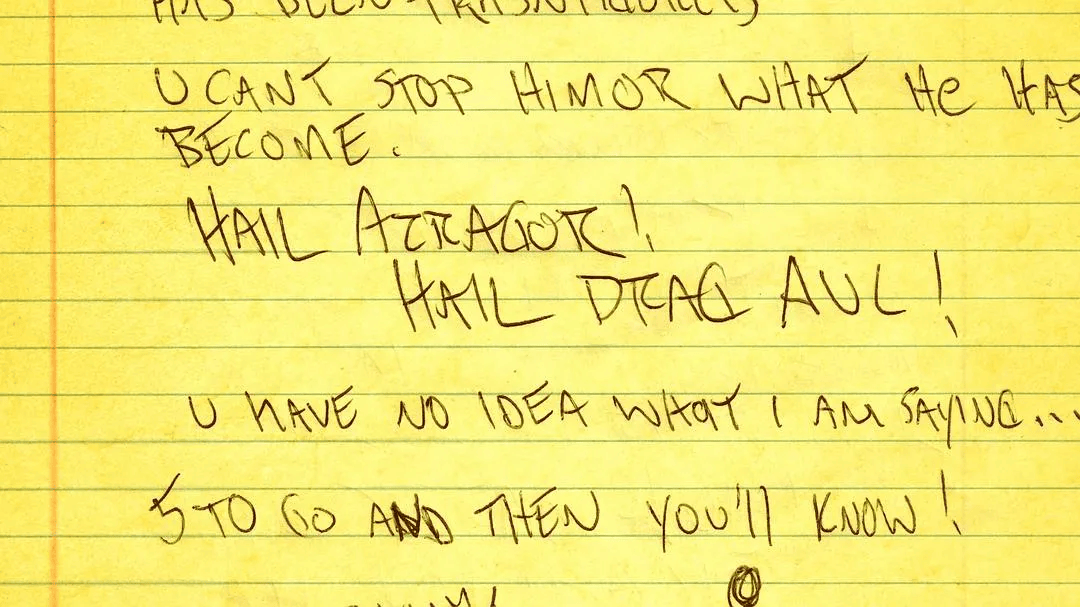 HAS BEEN
U CANT STOP HIM OR WHAT HE HAS
BECOME.
HAIL
HAIL DRAG AUL!
U HAVE NO IDEA WHAT I AM SAYING...
5 TO GO AND THEN YOU'll KNOW!